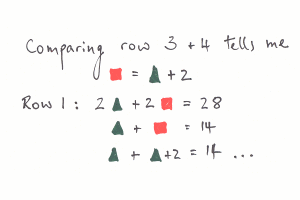 Comparing row 3 + 4 tells me
🟥 = ▲ + 2
Row 1 : 2 ▲ + 2 🟥 = 28
▲ + 🟥 = 14
▲ + ▲ +2 = 14 ...